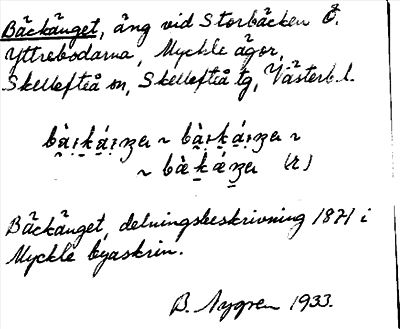 Bäckänget, äng vid Storbäcken Ö.
Yttrebodarna, Myckle ägor,
Skellefteå sn, Skellefteå tg, Västerb. l.
(r)
Bäckänget, delningsbeskrivning 1871 i
Myckle byaskrin.
B. Nygren 1933.